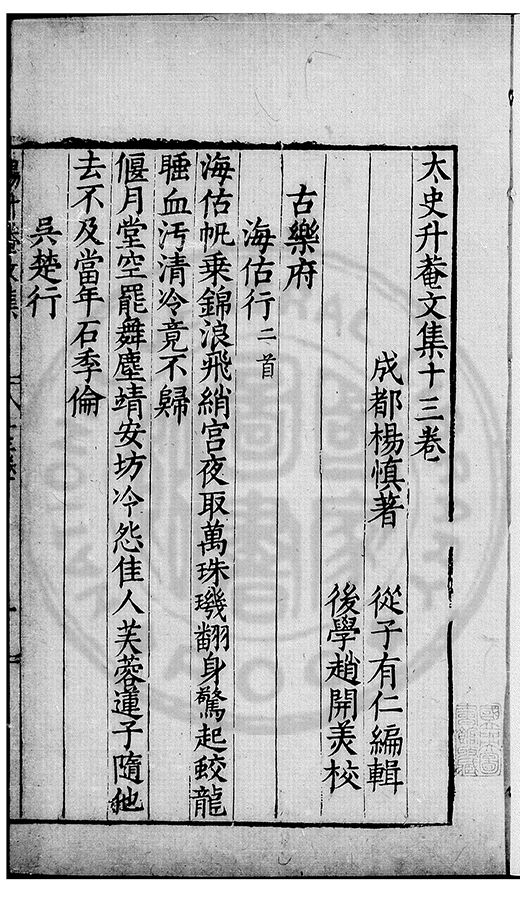 太史升菴文集十三卷
成都楊慎著 從子有仁編輯
後學趙開美校
古樂府
海估行二首
海估帆乘錦浪飛綃宮夜取萬珠璣翻身驚起蛟龍
睡血汚清冷竟不歸
偃月堂空罷舞塵靖安坊冷怨佳人芙蓉蓮子隨他
去不及當年石季倫
吳楚行